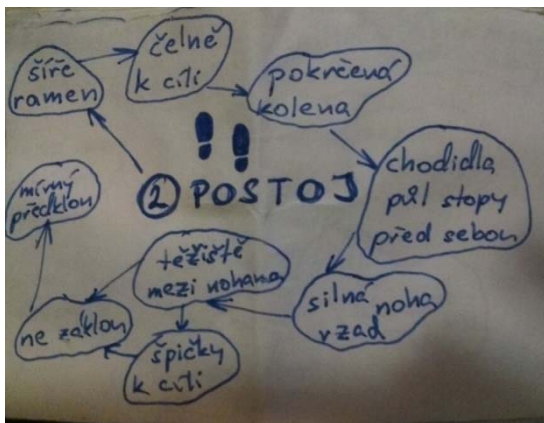 ② POSTOJ
šíře
ramen
čelně
k cíli
pokrčená
kolena
chodidla
půl stopy
před sebou
silná noha
vzad
těžiště
mezi nohama
špičky
k cíli
ne záklon
mírný
předklon